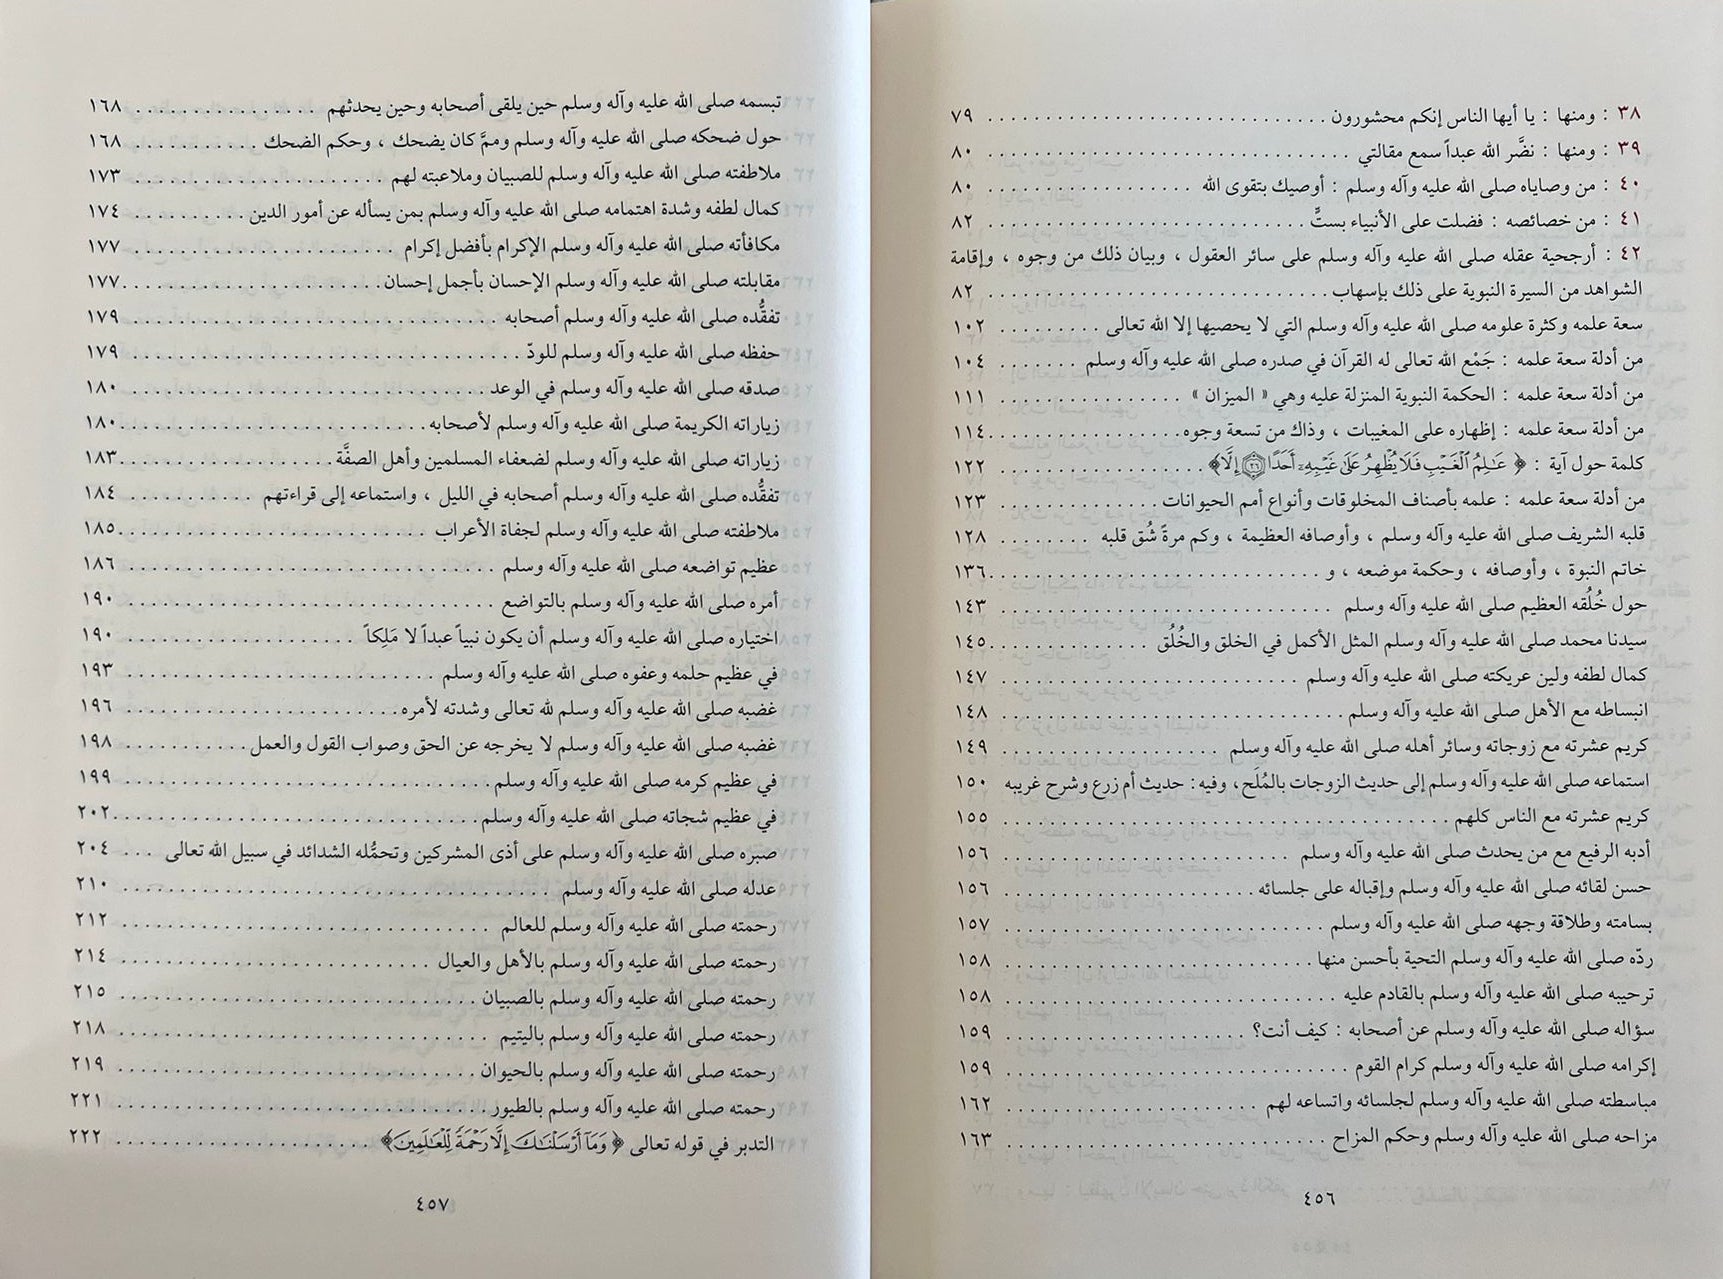 ٣٨ : ومنها : يا أيها الناس إنكم محشورون .............................. ٧٩
٣٩ : ومنها : نضَّر الله عبداً سمع مقالتي .............................. ٨٠
٤٠ : من وصاياه صلى الله عليه وآله وسلم : أوصيك بتقوى الله .................. ٨٠
٤١ : من خصائصه : فضلت على الأنبياء بستٍّ .......................... ٨٢
٤٢ : أرجحية عقله صلى الله عليه وآله وسلم على سائر العقول ، وبيان ذلك من وجوه ، وإقامة
الشواهد من السيرة النبوية على ذلك بإسهاب .............................. ٨٢
سعة علمه وكثرة علومه صلى الله عليه وآله وسلم التي لا يحصيها إلا الله تعالى ......... ١٠٢
من أدلة سعة علمه : جَمْع الله تعالى له القرآن في صدره صلى الله عليه وآله وسلم ....... ١٠٤
من أدلة سعة علمه : الحكمة النبوية المنزلة عليه وهي « الميزان » ................ ١١١
من أدلة سعة علمه : إظهاره على المغيبات ، وذاك من تسعة وجوه ................ ١١٤
كلمة حول آية : ﴿ عَٰلِمُ ٱلْغَيْبِ فَلَا يُظْهِرُ عَلَىٰ غَيْبِهِۦٓ أَحَدًا ۝٢٦ إِلَّا﴾ .................. ١٢٢
من أدلة سعة علمه : علمه بأصناف المخلوقات وأنواع أمم الحيوانات .............. ١٢٣
قلبه الشريف صلى الله عليه وآله وسلم ، وأوصافه العظيمة ، وكم مرةً شُق قلبه ........ ١٢٨
خاتم النبوة ، وأوصافه ، وحكمة موضعه ، و .............................. ١٣٦
حول خُلُقه العظيم صلى الله عليه وآله وسلم .............................. ١٤٣
سيدنا محمد صلى الله عليه وآله وسلم المثل الأكمل في الخلق والخُلُق .............. ١٤٥
كمال لطفه ولين عريكته صلى الله عليه وآله وسلم .......................... ١٤٧
انبساطه مع الأهل صلى الله عليه وآله وسلم .............................. ١٤٨
كريم عشرته مع زوجاته وسائر أهله صلى الله عليه وآله وسلم .................. ١٤٩
استماعه صلى الله عليه وآله وسلم إلى حديث الزوجات بالمُلَح، وفيه: حديث أم زرع وشرح غريبه ١٥٠
كريم عشرته مع الناس كلهم .................................. ١٥٥
أدبه الرفيع مع من يحدث صلى الله عليه وآله وسلم .......................... ١٥٦
حسن لقائه صلى الله عليه وآله وسلم وإقباله على جلسائه ...................... ١٥٦
بسامته وطلاقة وجهه صلى الله عليه وآله وسلم .............................. ١٥٧
ردّه صلى الله عليه وآله وسلم التحية بأحسن منها .......................... ١٥٨
ترحيبه صلى الله عليه وآله وسلم بالقادم عليه .............................. ١٥٨
سؤاله صلى الله عليه وآله وسلم عن أصحابه : كيف أنت؟ ...................... ١٥٩
إكرامه صلى الله عليه وآله وسلم كرام القوم .............................. ١٥٩
مباسطته صلى الله عليه وآله وسلم لجلسائه واتساعه لهم ...................... ١٦٢
مزاحه صلى الله عليه وآله وسلم وحكم المزاح .............................. ١٦٣
٤٥٦
تبسمه صلى الله عليه وآله وسلم حين يلقى أصحابه وحين يحدثهم ................ ١٦٨
حول ضحكه صلى الله عليه وآله وسلم وممَّ كان يضحك ، وحكم الضحك ........... ١٦٨
ملاطفته صلى الله عليه وآله وسلم للصبيان وملاعبته لهم ...................... ١٧٣
كمال لطفه وشدة اهتمامه صلى الله عليه وآله وسلم بمن يسأله عن أمور الدين .......... ١٧٤
مكافأته صلى الله عليه وآله وسلم الإكرام بأفضل إكرام ...................... ١٧٧
مقابلته صلى الله عليه وآله وسلم الإحسان بأجمل إحسان ...................... ١٧٧
تفقُّده صلى الله عليه وآله وسلم أصحابه .............................. ١٧٩
حفظه صلى الله عليه وآله وسلم للودّ .................................. ١٧٩
صدقه صلى الله عليه وآله وسلم في الوعد .............................. ١٨٠
زياراته الكريمة صلى الله عليه وآله وسلم لأصحابه .......................... ١٨٠
زياراته صلى الله عليه وآله وسلم لضعفاء المسلمين وأهل الصفَّة .................. ١٨٣
تفقُّده صلى الله عليه وآله وسلم أصحابه في الليل ، واستماعه إلى قراءتهم ............ ١٨٤
ملاطفته صلى الله عليه وآله وسلم لجفاة الأعراب .......................... ١٨٥
عظيم تواضعه صلى الله عليه وآله وسلم .............................. ١٨٦
أمره صلى الله عليه وآله وسلم بالتواضع .............................. ١٩٠
اختياره صلى الله عليه وآله وسلم أن يكون نبياً عبداً لا مَلِكاً .................. ١٩٠
في عظيم حلمه وعفوه صلى الله عليه وآله وسلم .......................... ١٩٣
غضبه صلى الله عليه وآله وسلم لله تعالى وشدته لأمره ...................... ١٩٦
غضبه صلى الله عليه وآله وسلم لا يخرجه عن الحق وصواب القول والعمل .......... ١٩٨
في عظيم كرمه صلى الله عليه وآله وسلم .............................. ١٩٩
في عظيم شجاته صلى الله عليه وآله وسلم .............................. ٢٠٢
صبره صلى الله عليه وآله وسلم على أذى المشركين وتحمُّله الشدائد في سبيل الله تعالى ... ٢٠٤
عدله صلى الله عليه وآله وسلم .................................. ٢١٠
رحمته صلى الله عليه وآله وسلم للعالم .............................. ٢١٢
رحمته صلى الله عليه وآله وسلم بالأهل والعيال .......................... ٢١٤
رحمته صلى الله عليه وآله وسلم بالصبيان .............................. ٢١٥
رحمته صلى الله عليه وآله وسلم باليتيم .............................. ٢١٨
رحمته صلى الله عليه وآله وسلم بالحيوان .............................. ٢١٩
رحمته صلى الله عليه وآله وسلم بالطيور .............................. ٢٢١
التدبر في قوله تعالى ﴿ وَمَآ أَرْسَلْنَٰكَ إِلَّا رَحْمَةً لِّلْعَٰلَمِينَ﴾ ...................... ٢٢٢
٤٥٧